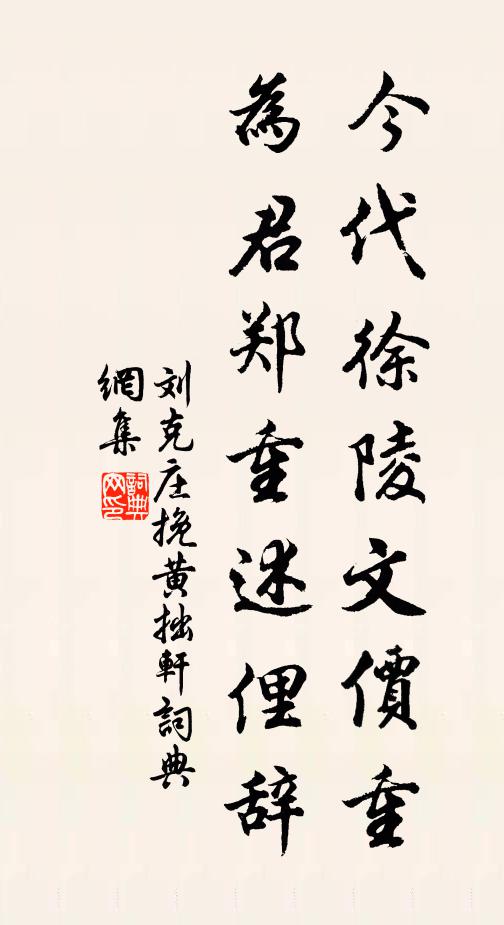 今代徐陵文價重
為君郑重述俚辞
刘克庄挽黄拙軒詞典
網集
詞典
网印